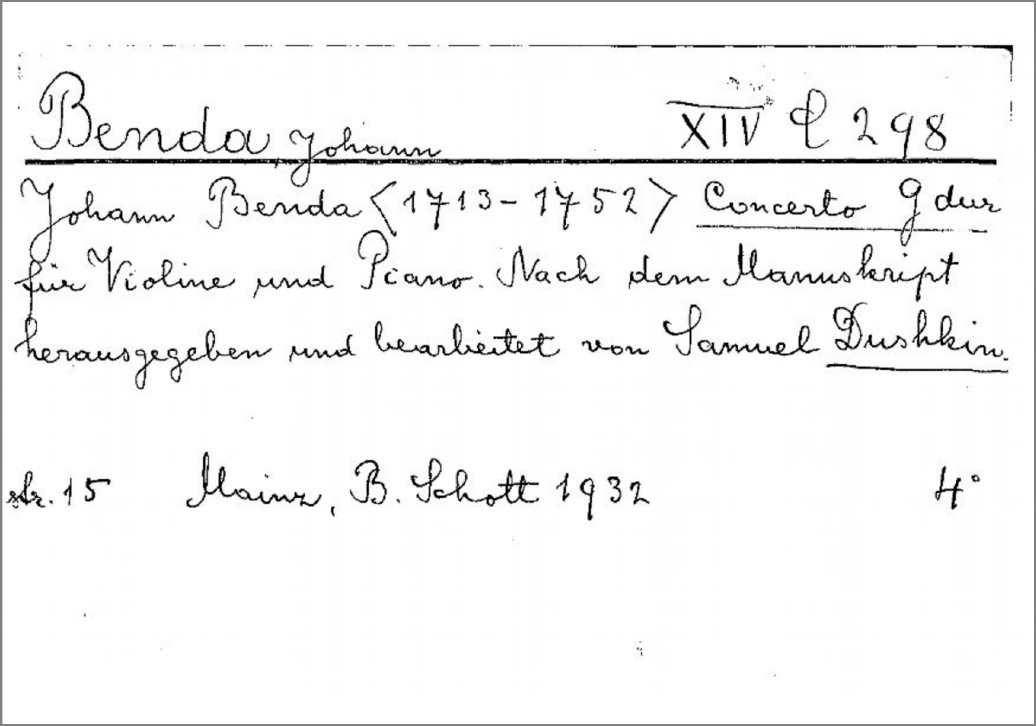 Benda, Johann XIV C 298
Johann Benda <1713-1752> Concerto G dur
für Violine und Piano. Nach dem Manuskript
herausgegeben und bearbeitet von Samuel Dushkin.
str. 15 Mainz, B. Schott 1932 4°